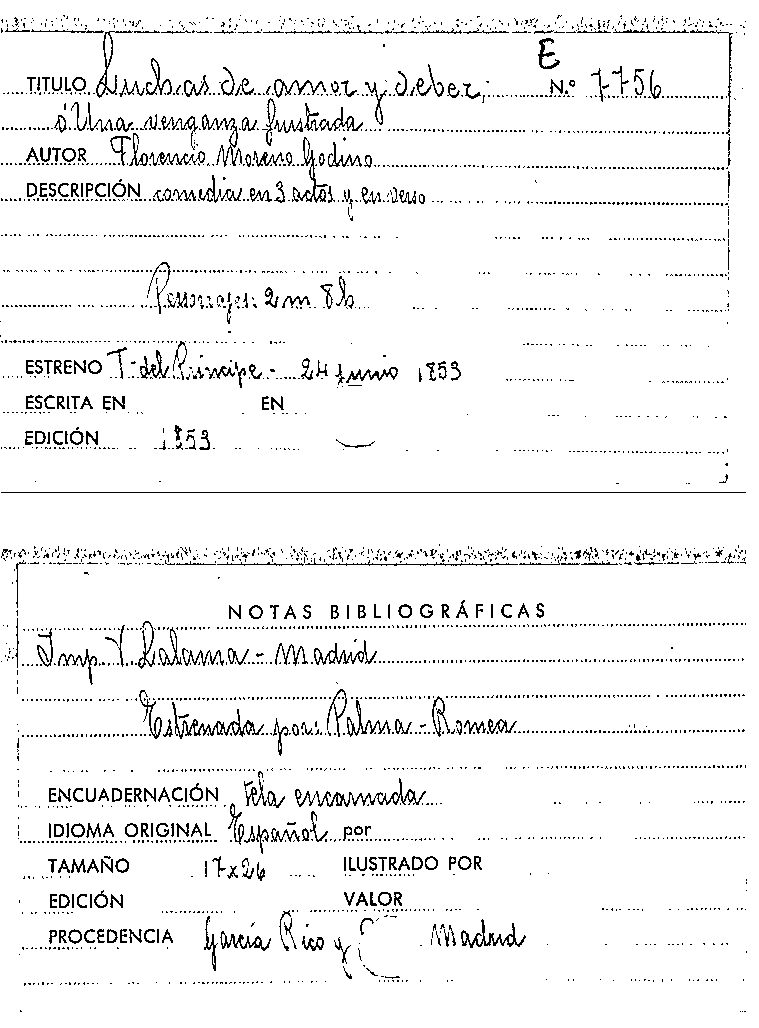 E
TITULO Luchas de amor y deber, N.º 7756
ó Una venganza frustrada
AUTOR Florencio Moreno Godino
DESCRIPCIÓN comedia en 3 actos y en verso
Personajes: 2 m 8 h
ESTRENO T- del Príncipe - 24 junio 1853
ESCRITA EN EN
EDICIÓN 1853
NOTAS BIBLIOGRÁFICAS
Imp. V Lalama - Madrid
Estrenada por: Palma - Romea
ENCUADERNACIÓN tela encarnada
IDIOMA ORIGINAL Español por
TAMAÑO 17x26 ILUSTRADO POR
EDICIÓN VALOR
PROCEDENCIA García Rico y C Madrid